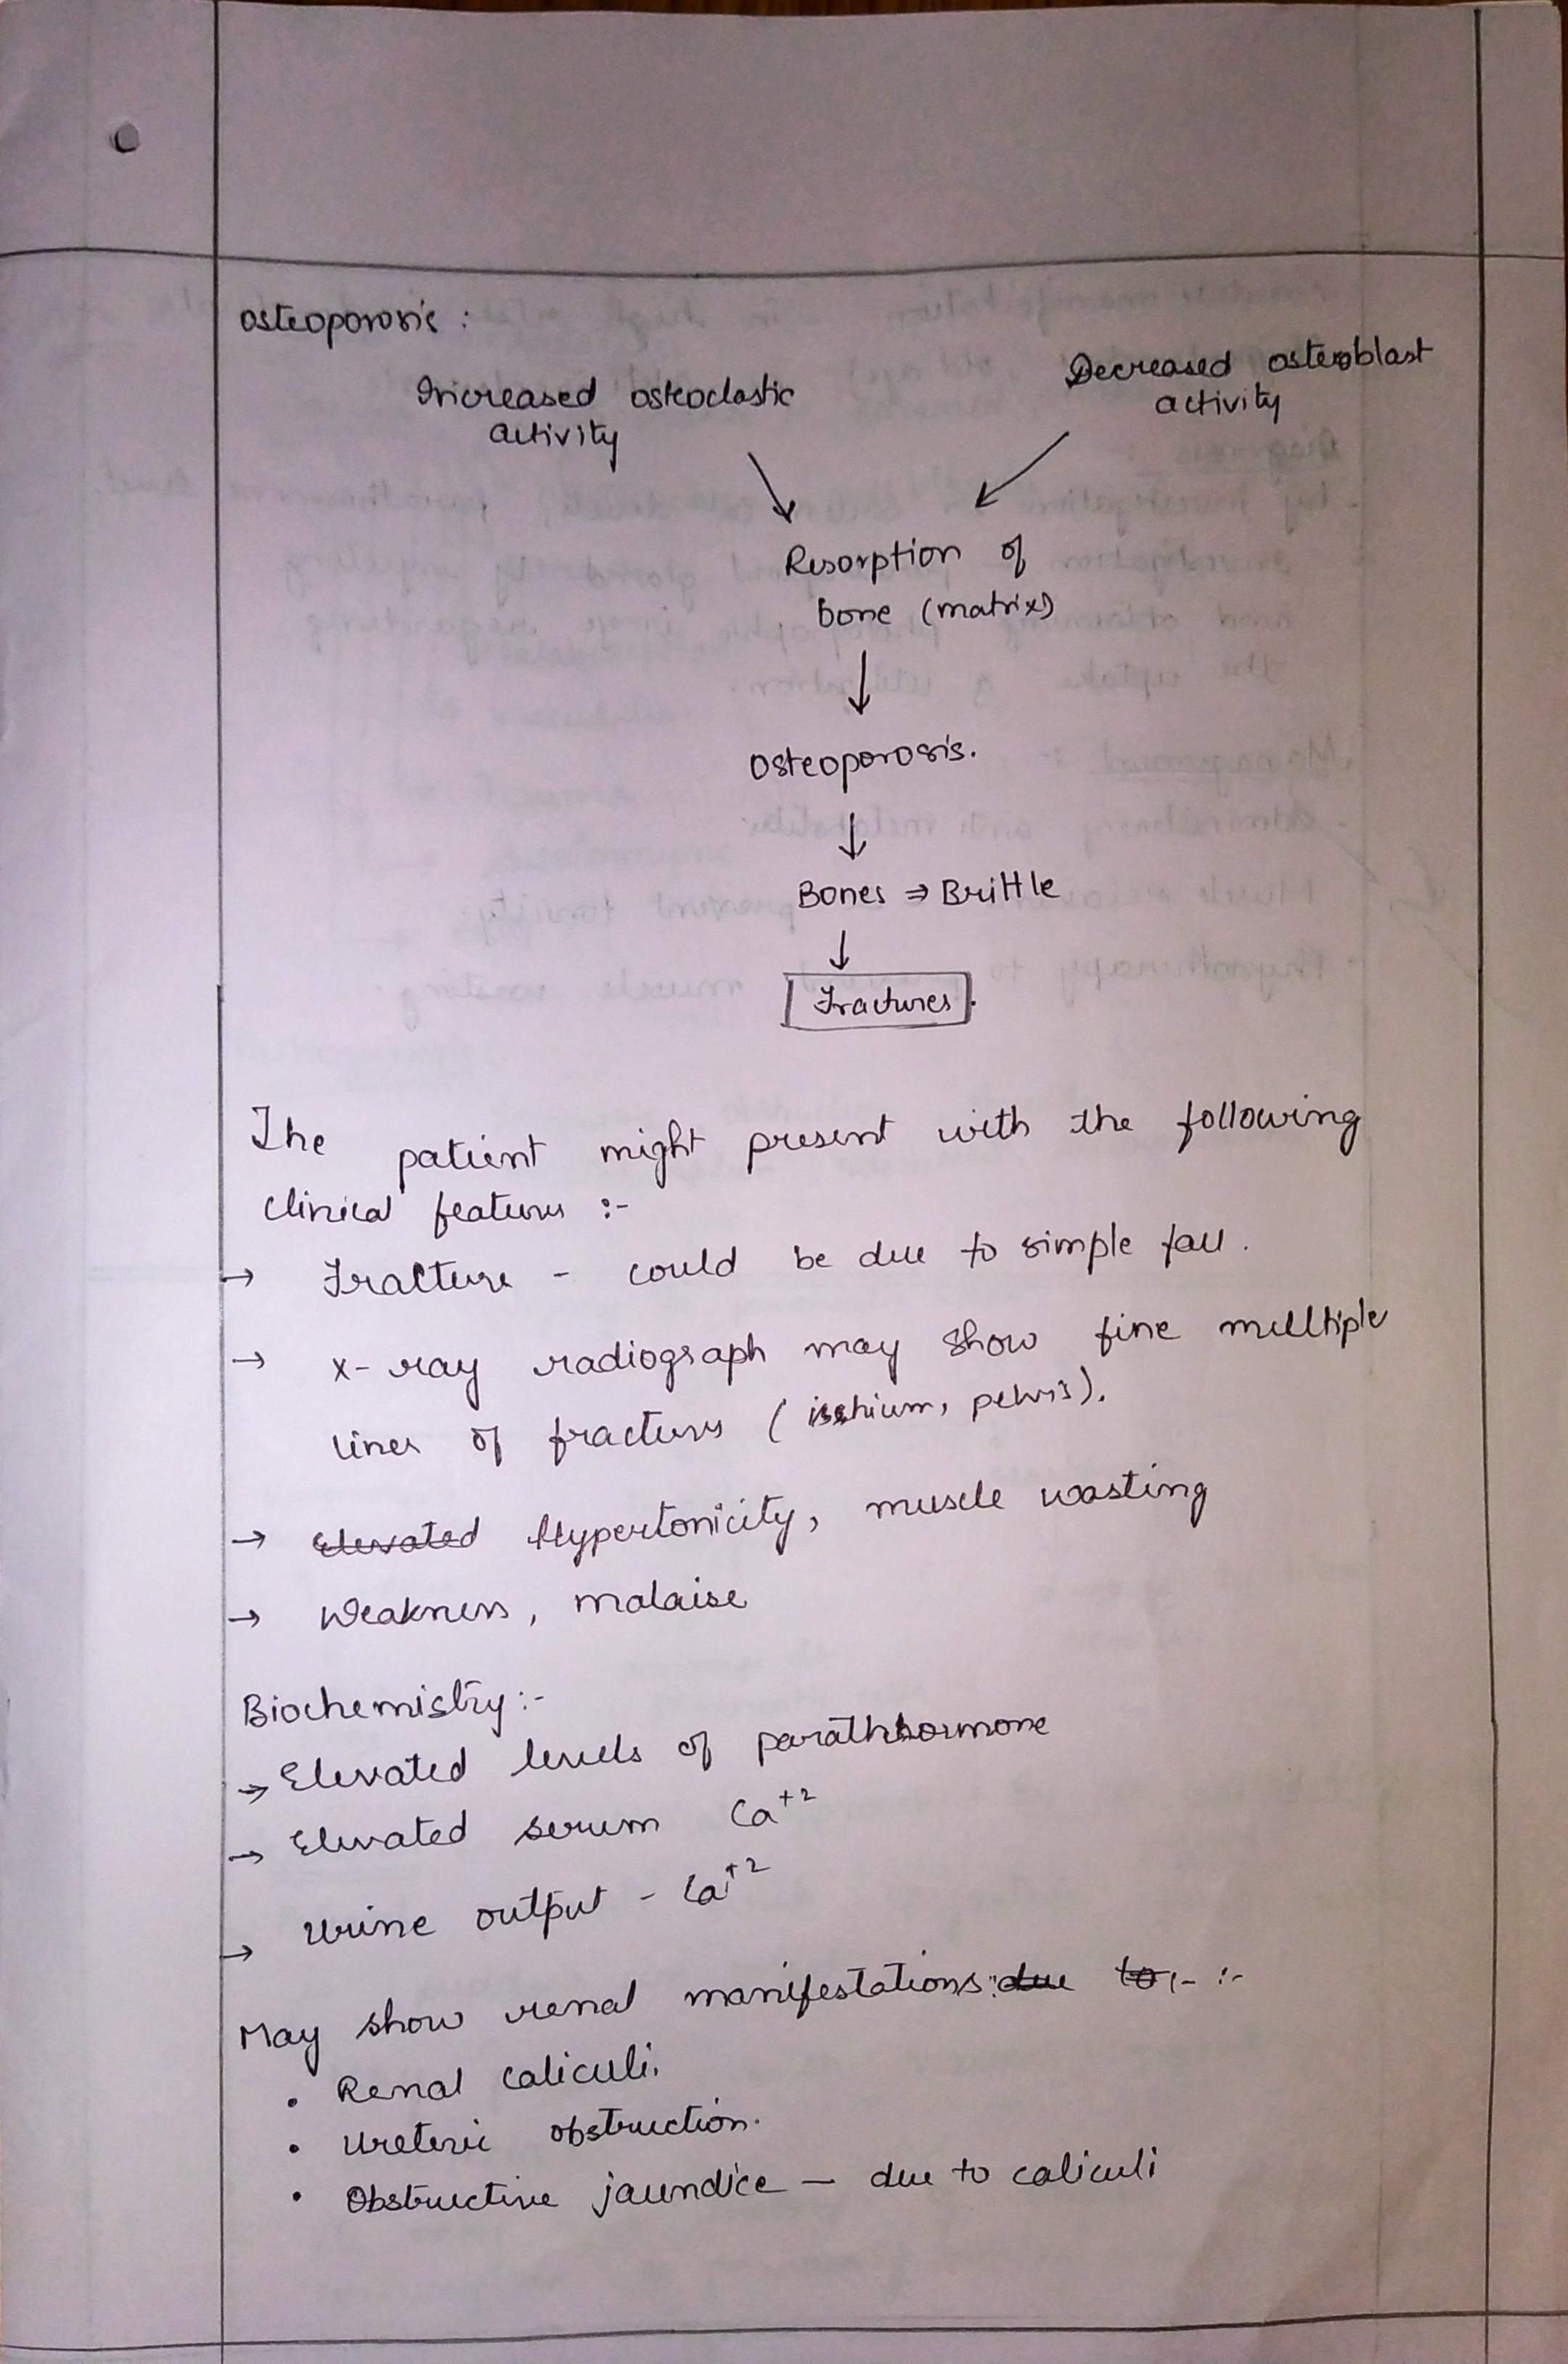 Osteoporosis :
Increased osteoclastic
activity
Decreased osteoblast
activity
Resorption of
bone (matrix)
Osteoporosis.
Bones ⇒ Brittle
Fractures.
The patient might present with the following
clinical features :-
→ Fracture - could be due to simple fall.
→ X-ray radiograph may show fine multiple
lines of fractures (ischium, pelvis).
→ Elevated Hypertonicity, muscle wasting
→ Weakness, malaise
Biochemistry :-
→ Elevated levels of parathhormone
→ Elevated serum Ca⁺²
→ Urine output - Ca⁺²
May show renal manifestations: due to :- :-
• Renal caliculi.
• Ureteric obstruction.
• Obstructive jaundice — due to caliculi